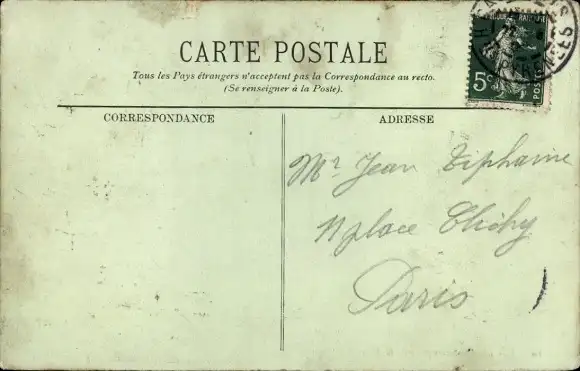 CARTE POSTALE
Tous les Pays étrangers n'acceptent pas la Correspondance au recto.
(Se renseigner à la Poste).
CORRESPONDANCE
ADRESSE
Mr Jean Tiphaine
place Clichy
Paris
5c
POS